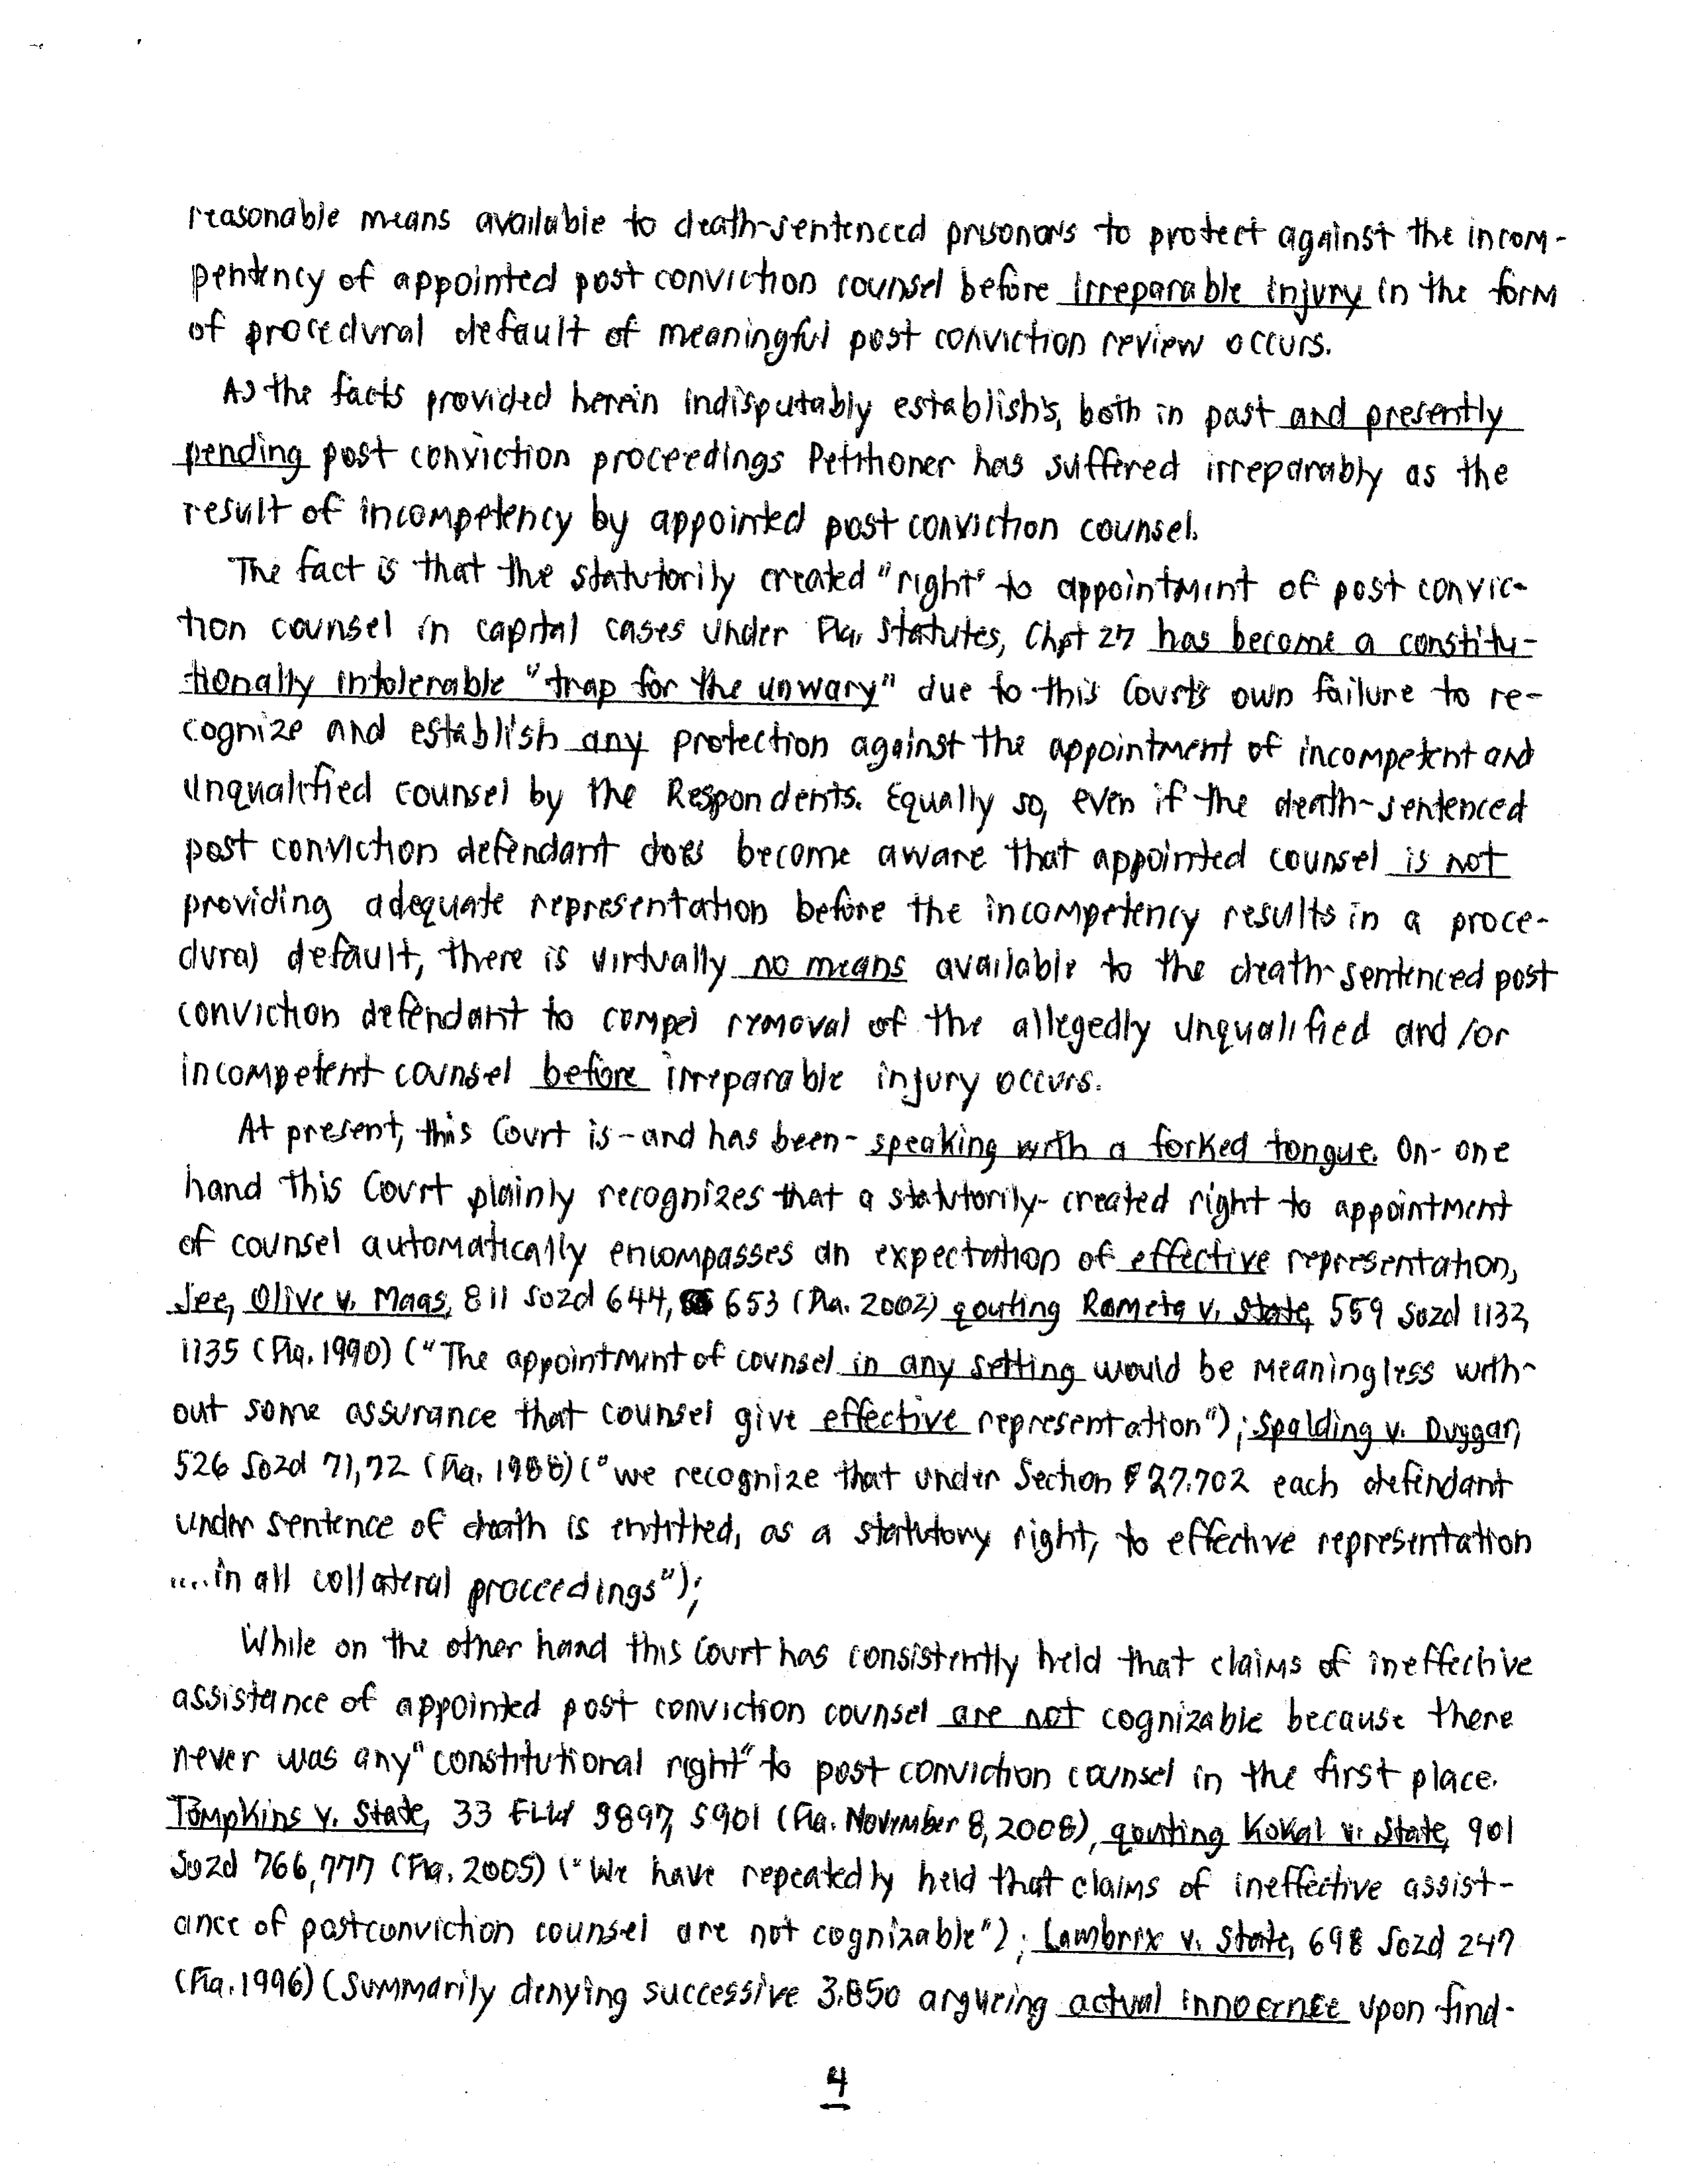 reasonable means available to death-sentenced prisonors to protect against the incom-
pentency of appointed post conviction counsel before irreparable injury in the form
of procedural default of meaningful post conviction review occurs.
As the facts provided herein indisputably establish's, both in past and presently
pending post conviction proceedings Petitioner has suffered irreparably as the
result of incompetency by appointed post conviction counsel.
The fact is that the statutorily created "right" to appointment of post convic-
tion counsel in capital cases under Fla. Statutes, Chpt 27 has become a constitu-
tionally intolerable "trap for the unwary" due to this Court's own failure to re-
cognize and establish any protection against the appointment of incompetent and
unqualified counsel by the Respondents. Equally so, even if the death-sentenced
post conviction defendant does become aware that appointed counsel is not
providing adequate representation before the incompetency results in a proce-
dural default, there is virtually no means available to the death-sentenced post
conviction defendant to compel removal of the allegedly unqualified and/or
incompetent counsel before irreparable injury occurs.
At present, this Court is-and has been-speaking with a forked tongue. On-one
hand this Court plainly recognizes that a statutorily-created right to appointment
of counsel automatically encompasses an expectation of effective representation,
See, Olive v. Maas, 811 So2d 644, 653 (Fla. 2002) qouting Rameta v. State, 559 So2d 1132,
1135 (Fla. 1990) ("The appointment of counsel in any setting would be meaningless with-
out some assurance that counsel give effective representation"); Spalding v. Duggar,
526 So2d 71,72 (Fla. 1988) ("we recognize that under Section § 27.702 each defendant
under sentence of death is entitled, as a statutory right, to effective representation
....in all collateral proceedings");
While on the other hand this Court has consistently held that claims of ineffective
assistance of appointed post conviction counsel are not cognizable because there
never was any "constitutional right" to post conviction counsel in the first place.
Tompkins v. State, 33 FLW S897, S901 (Fla. November 8, 2008), qouting Kokal v. State, 901
So2d 766,777 (Fla. 2005) ("We have repeatedly held that claims of ineffective assist-
ance of postconviction counsel are not cognizable"); Lambrix v. State, 698 So2d 247
(Fla. 1996) (Summarily denying successive 3.850 argueing actual innocence upon find-
4